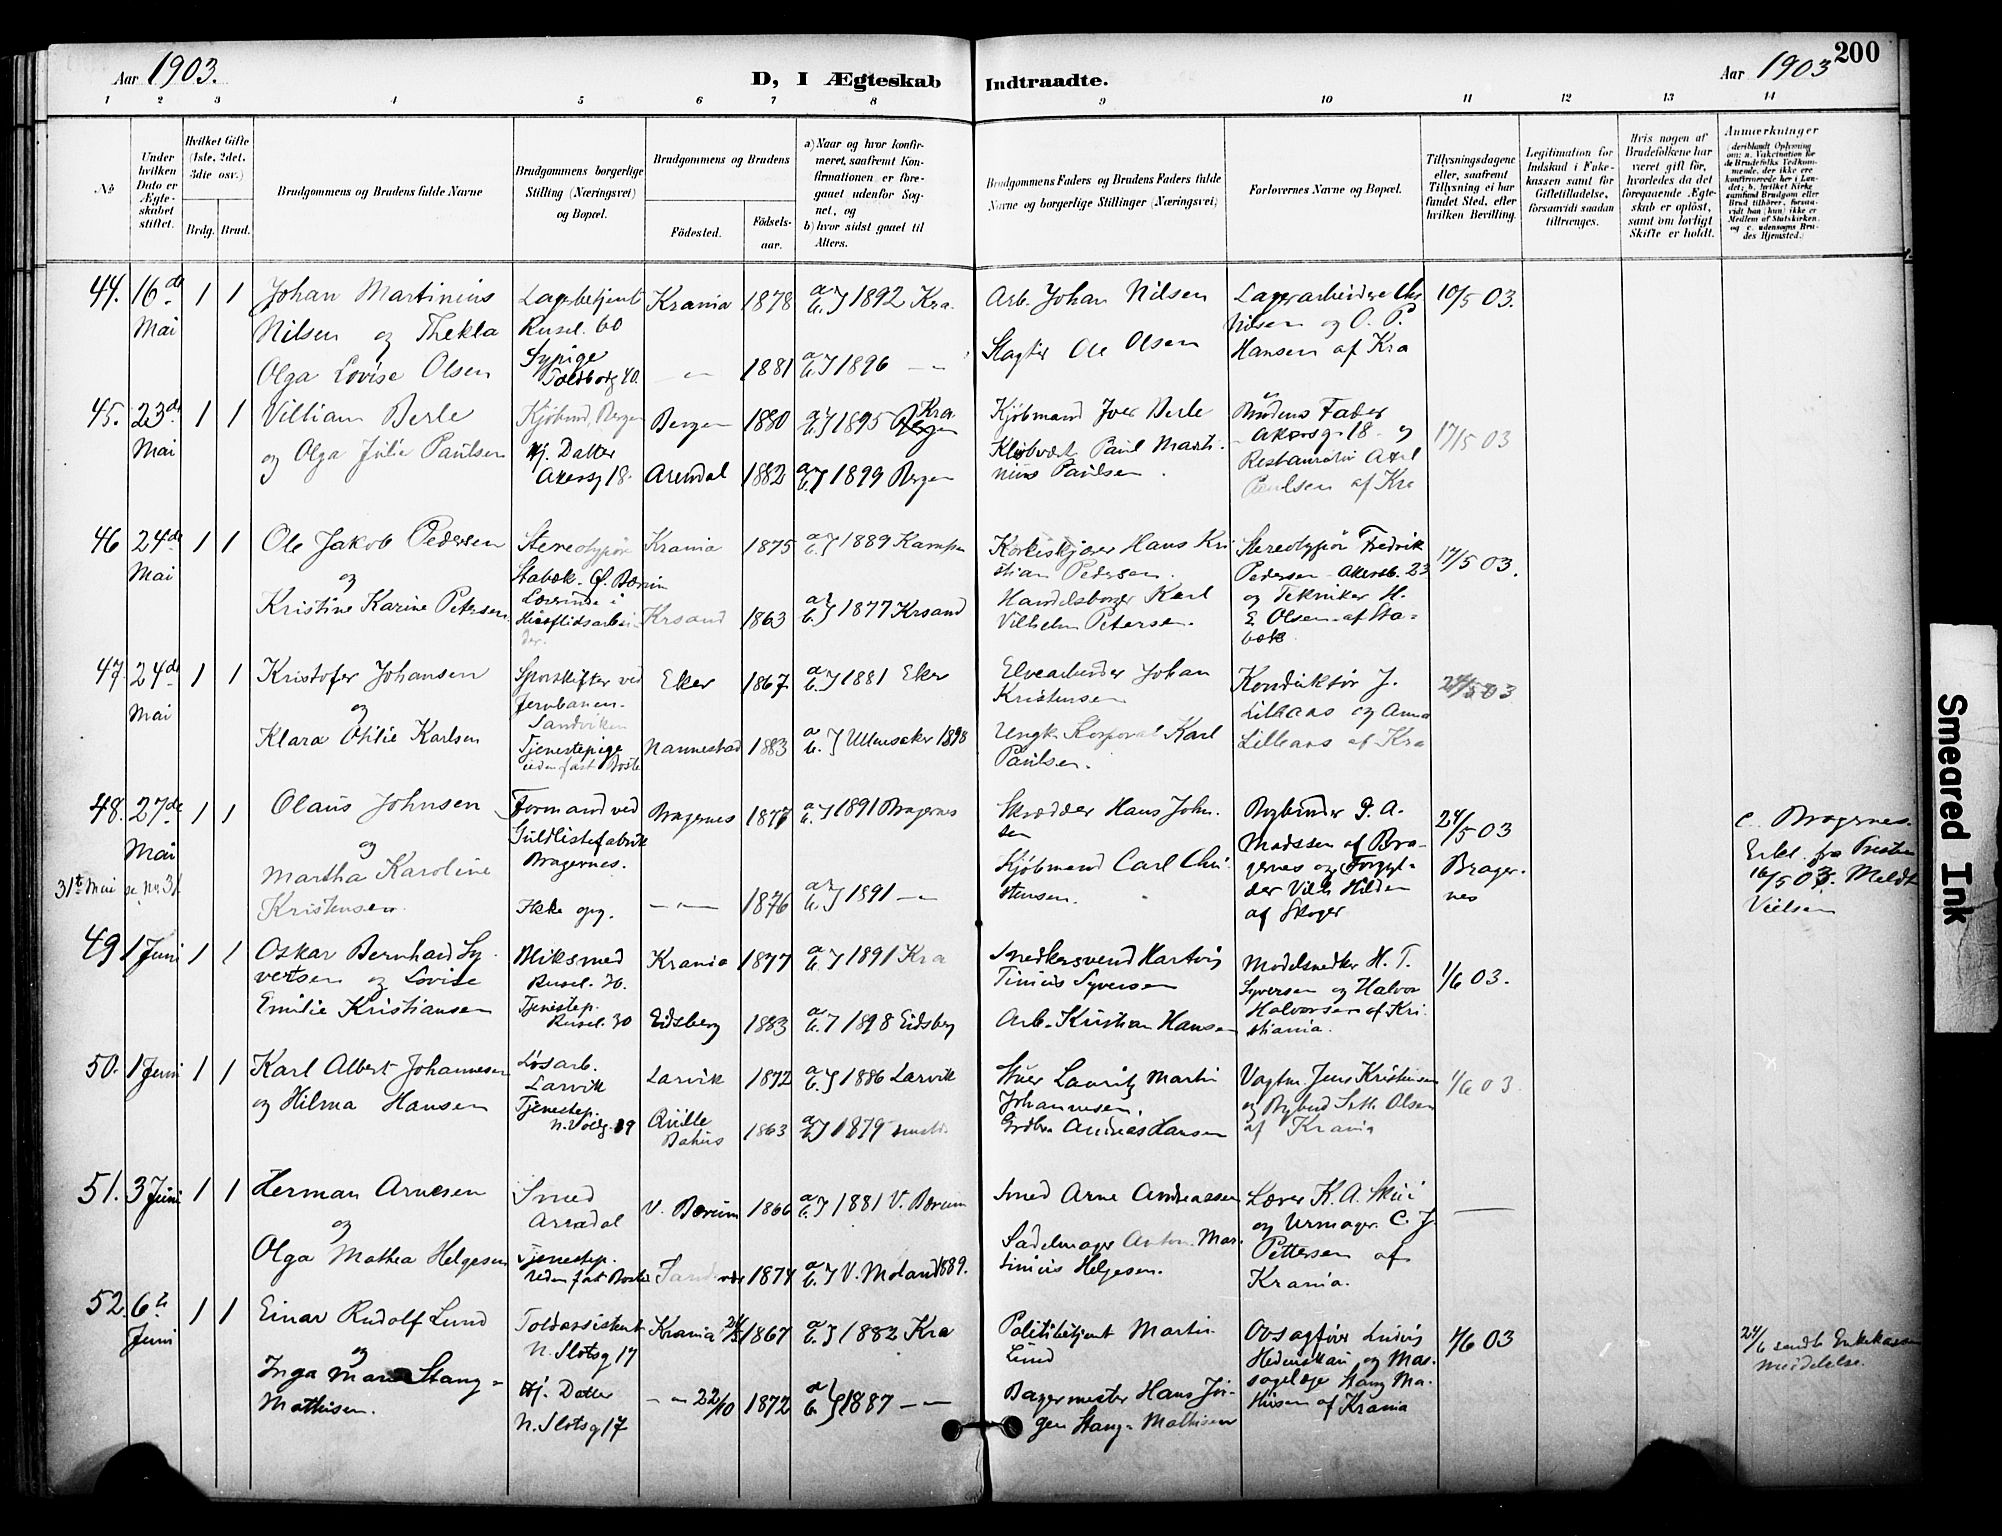 200
Aar 1903.
D, I Ægteskab Indtraadte.
Aar 1903
1 2 3 4 5 6 7 8 9 10 11 12 13 14
No
Under hvilken Dato er Ægteskabet stiftet.
Hvilket Gifte (1ste, 2det, 3die osv.)
Brdg. Brud.
Brudgommens og Brudens fulde Navne
Brudgommens borgerlige Stilling (Næringsvei) og Bopæl.
Brudgommens og Brudens
Födested.
Födselsaar.
a) Naar og hvor konfirmeret, saafremt Konfirmationen er foregaaet udenfor Sognet, og
b) hvor sidst gaaet til Alters.
Brudgommens Faders og Brudens Faders fulde Navne og borgerlige Stillinger (Næringsvei)
Forlovernes Navne og Bopæl.
Tillysningsdagene eller, saafremt Tillysning ei har fundet Sted, efter hvilken Bevilling.
Legitimation for Indskud i Enkekassen samt for Giftetilladelse, forsaavidt saadan tiltrænges.
Hvis nogen af Brudefolkene har været gift før, hvorledes da det foregaaende Ægteskab er opløst, samt om lovligt Skifte er holdt.
Anmerkninger
44. 16de Mai 1 1
Johan Martinius
Nilsen og Thekla
Olga Lovise Olsen
Lagebetjent
Rusel. 60
Sypige
Toldbodg 40.
Krania 1878 a b } 1892 Kra.
— " — 1881 a b } 1896 — " —
Arb. Johan Nilsen
Slagter Ole Olsen
Lagerarbeidere Chr
Nilsen og O. P.
Hansen af Kra
10/5 03.
45. 23de Mai 1 1
Villiam Berle
og Olga Julie Paulsen
Kjøbmd, Bergen
Hj. Datter
Akersg 18.
Bergen 1880 a b } 1895 Kra
Arendal 1882 a b } 1899 Bergen
Kjöbmand Iver Berle
Paul Martinius Paulsen
Brudens Fader
Akersg. 18 og
Restauratör Axel
Paulsen af Kra
17/5 03
46 24de Mai 1 1
Ole Jakob Pedersen
og
Kristine Karine Petersen
Stereotypör
Stabæk. Ø. Bærum
Lærerinde i
Husflidsarbeider.
Krania 1875 a b } 1889 Kampen
Krsand 1863 a b } 1877 Krsand
Hans Kristian Pedersen.
Handelsborger Karl
Vilhelm Petersen.
Stereotypör Fredrik
Pedersen - Akersb. 23
og Tekniker H.
E. Olsen af Stabæk
17/5 03.
47. 24de Mai 1 1
Kristofer Johansen
og
Klara Otilie Karlsen
Sporskifter ved
Jernbanen.
Sandviken
Tjenestepige
uden fast Bosted
Eker 1867 a b } 1881 Eker
Nannestad 1883 a b } Ullensaker 1898
Elvearbeider Johan
Kristensen
Ungk. Korporal Karl
Paulsen.
Konduktör J.
Lillaas og Anna
Lillaas af Kra
24/5 03
48. 27de Mai 1 1
31te Mai se no. 31
Olaus Johnsen
og
Martha Karoline
Kristensen
Formand ved
Guldlistefabrik
Bragernes.
Ikke opg.
Bragernes 1877 a b } 1891 Bragernes
— " — 1876 a b } 1891 — " —
Skrædder Hans Johnsen
Kjöbmand Carl Christensen.
Bybinder G. A.
Madssen af Bragernes og Forgylder Vilh Hilden
af Skoger
24/5 03
Bragernes
c. Bragernes.
Erkl. fra Presten
16/5 03. Meldt
49 1 Juni 1 1
Oskar Bernhard Syvertsen og Lovise
Emilie Kristiansen
Bliksmed
Rusel. 30.
Tjenestep.
Rusel. 30
Krania 1877 a b } 1891 Kra
Eidsberg 1883 a b } 1898 Eidsberg
Snedkersvend Hartvig
Tinius Syversen
Arb. Kristian Hansen
Modelsnedker H. T.
Syversen og Halvor
Halvorsen af Kristiania.
1/6 03.
50. 1 Juni 1 1
Karl Albert Johannesen
og Hilma Hansen
Løsarb.
Larvik
Tjenestep.
N. Vollg. 19
Larvik 1872 a b } 1886 Larvik
Qville
Bahus 1863 a b } 1879
Stuer Lauritz Martin
Johannesen.
Grdbr. Andreas Hansen
Vagtm. Jens Kristensen
og Bybud Seth. Olsen
af Krania
1/6 03
51. 3 Juni 1 1
Herman Arnesen
og
Olga Mathea Helgesen
Smed
Tjenestep.
uden fast Bosted
V. Bærum 1866 a b } 1881 V. Bærum
1874 a b } V. Moland 1889.
Smed Arne Andreassen
Sadelmager Anton Martinius Helgesen.
Lærer K. A. Skui
og Urmager C. J.
Pettersen af
Krania.
—
52. 6te Juni 1 1
Einar Rudolf Lund
og
Inga Marie Stang-
Mathisen.
Toldassistent
N. Slotsg 17
Hj. Datter
N. Slotsg 17
Krania 24/8 1867 a b } 1882 Kra
— " — 22/10 1872 a b } 1887 — " —
Politibetjent Martin
Lund
Bagermester Hans Jörgen Stang-Mathisen
Ovsagfører Ludvig
Hedenskau og Massagelæge Stang Mathisen af Krania
1/6 03
24/6 sendt Enkekassen
meddelelse.
Smeared Ink